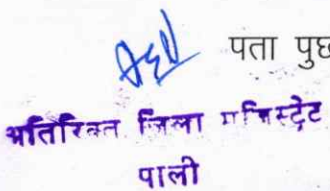 पता पुछ
अतिरिक्त जिला मजिस्ट्रेट
पाली